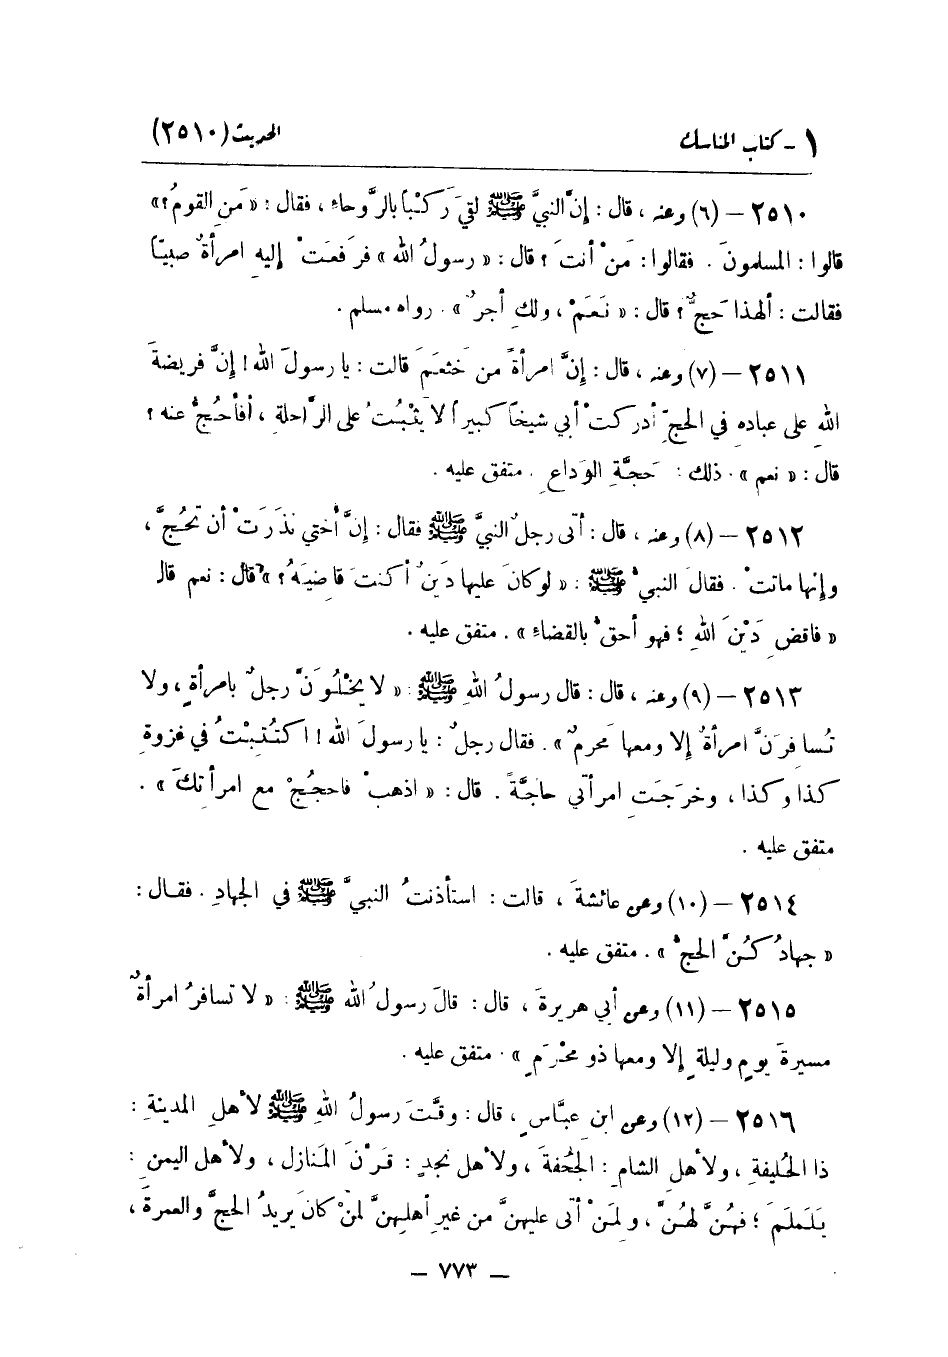 ١ - كتاب المناسك الحديث (٢٥١٠)
٢٥١٠ - (٦) وعنه ، قال : إنَّ النبيَّ ﷺ لقيَ رَكْباً بالرَّوحاءِ ، فقال : « مَنِ القومُ ؟ »
قالوا : المسلمونَ . فقالوا : مَنْ أنتَ ؟ قال : « رسولُ الله » فرفعَتْ إليهِ امرأةٌ صبيّاً
فقالت : ألهذا حَجٌّ ؟ قال : « نَعَمْ ، ولكِ أجرٌ » . رواه مسلم .
٢٥١١ - (٧) وعنه ، قال : إنَّ امرأةً من خثعَمَ قالت : يا رسولَ الله ! إنَّ فريضةَ
اللهِ على عبادِه في الحجِّ أدركتْ أبي شيخاً كبيراً لا يَثْبُتُ على الرَّاحلةِ ، أفأحُجُّ عنه ؟
قال : « نعم » . ذلك : حَجَّةِ الوَداعِ . متفق عليه .
٢٥١٢ - (٨) وعنه ، قال : أتى رجلٌ النبيَّ ﷺ فقال : إنَّ أُختي نذَرَتْ أن تحُجَّ ،
وإنها ماتتْ . فقالَ النبيُّ ﷺ : « لو كانَ عليها دَينٌ أكنتَ قاضِيَهُ ؟ » قال : نعم قال
« فاقضِ دَيْنَ اللهِ ؛ فهو أحقُّ بالقضاءِ » . متفق عليه .
٢٥١٣ - (٩) وعنه ، قال : قال رسولُ اللهِ ﷺ : « لا يخْلُوَنَّ رجلٌ بامرأةٍ ، ولا
تُسافِرَنَّ امرأةٌ إلا ومعها مَحرمٌ » . فقال رجلٌ : يا رسولَ الله ! اكتُتِبْتُ في غزوةِ
كذا وكذا ، وخرَجَتِ امرأتي حاجَّةً . قال : « اذهبْ فاحجُجْ مع امرأتِكَ » .
متفق عليه .
٢٥١٤ - (١٠) وعن عائشةَ ، قالت : استأذنتُ النبيَّ ﷺ في الجهادِ . فقال :
« جهادُكُنَّ الحجُّ » . متفق عليه .
٢٥١٥ - (١١) وعن أبي هريرةَ ، قال : قالَ رسولُ الله ﷺ : « لا تسافرُ امرأةٌ
مسيرةَ يومٍ وليلةٍ إلا ومعها ذو محْرَمٍ » . متفق عليه .
٢٥١٦ - (١٢) وعن ابن عبَّاسٍ ، قال : وقَّتَ رسولُ اللهِ ﷺ لأهلِ المدينةِ :
ذا الحُليفةِ ، ولأهلِ الشامِ : الجُحْفةَ ، ولأهلِ نجدٍ : قَرْنَ المَنازلِ ، ولأهلِ اليمنِ :
يَلَملَمَ ؛ فهُنَّ لهُنَّ ، ولمَنْ أتى عليهنَّ من غيرِ أهلِهنَّ لمنْ كانَ يريدُ الحجَّ والعمرةَ ،
- ٧٧٣ -